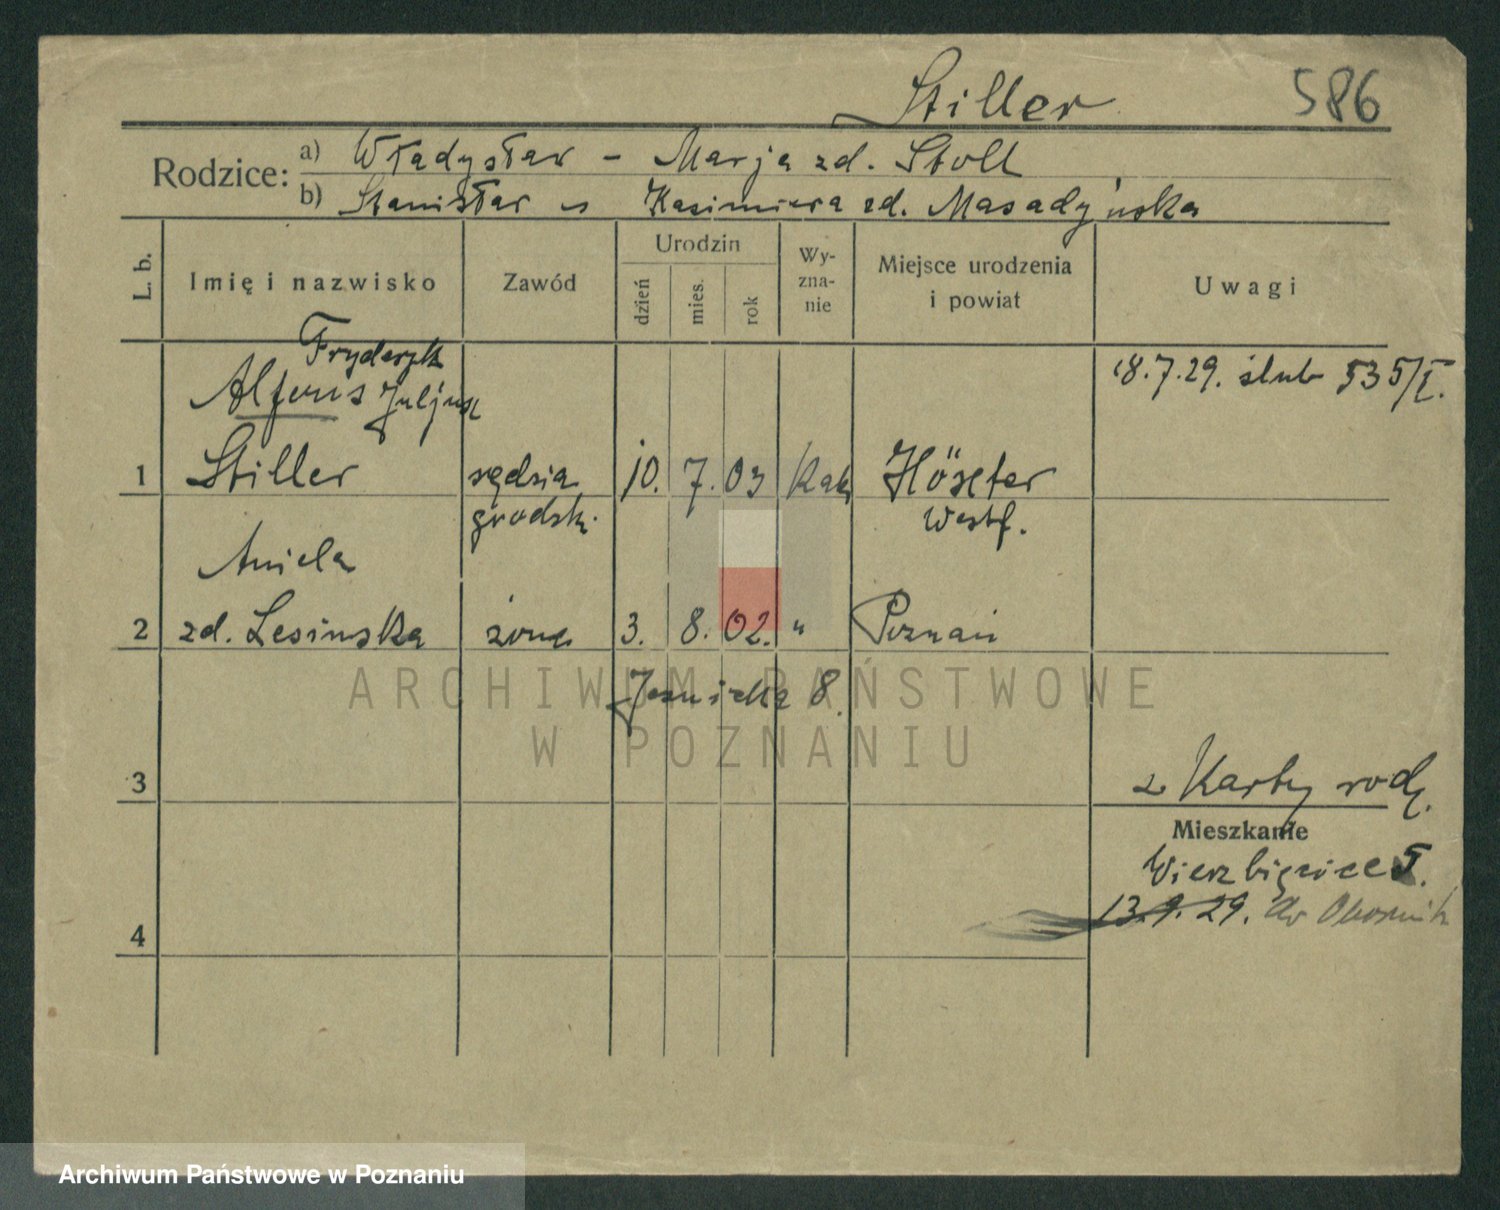 Stiller 586
Rodzice: a) Władysław - Marja zd. Stoll
b) Stanisław „ Kazimiera zd. Masadyńska
L. b. Imię i nazwisko Zawód Urodzin dzień mies. rok Wy-zna-nie Miejsce urodzenia i powiat Uwagi
Fryderyk 18.7.29. ślub 535/I.
Alfons Juljusz
1 Stiller sędzia 10. 7. 03 Kat. Höxter
grodzki Westf.
Aniela
2 zd. Lesińska żona 3. 8. 02. " Poznań
8.
ARCHIWUM PAŃSTWOWE
W POZNANIU
3 z Karty rodz.
Mieszkanie
Wierzbięcice 5.
13.9.29. do Obornik
4
Archiwum Państwowe w Poznaniu